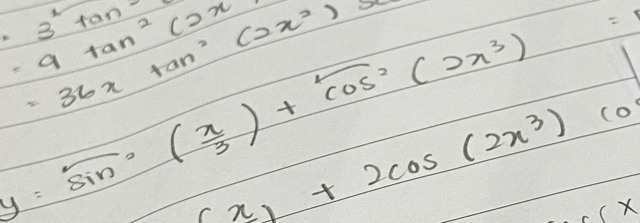 3² tan
= 9 tan² (2x
= 36x tan² (2x²)
y = sin² (x/3) + cos² (2x³) =
(x) + 2cos (2x³) co
(x